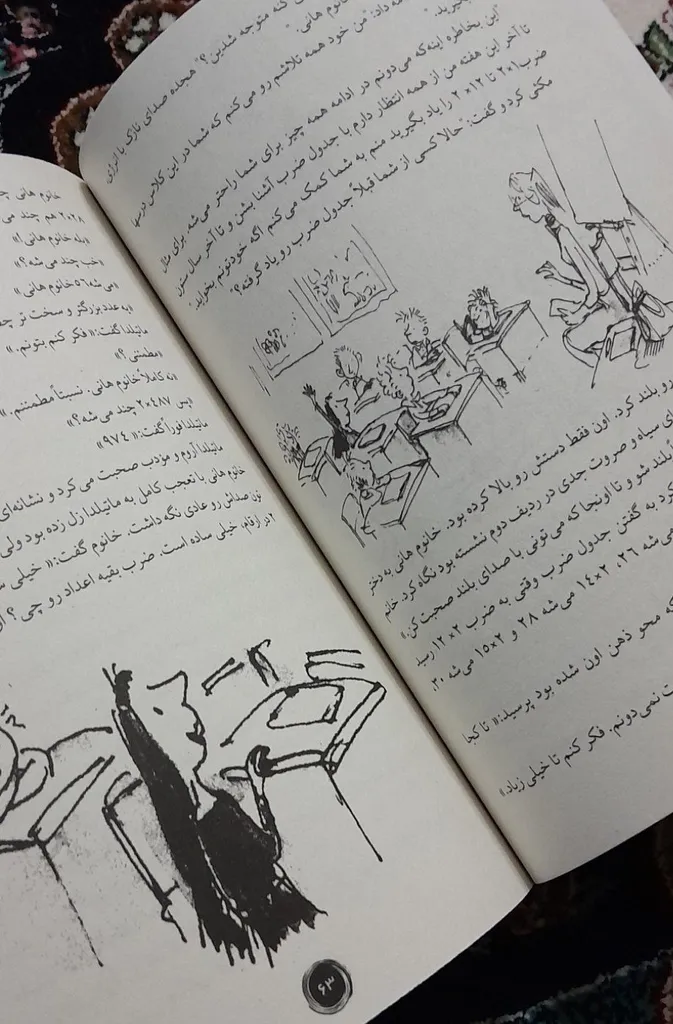 که متوجه شدین؟" هجده صدای نازک با انرژی
خانوم هانی."
داد: "من خود همه تلاشم رو می کنم که شما در این کلاس درسها
بگیرید."
"این بخاطره اینه که می دونم در ادامه همه چیز برای شما راحتر می شه. برای مثل
تا آخر این هفته من از همه انتظار دارم با جدول ضرب آشنا بشن و تا آخر سال
۲ را یاد بگیرید. منم به شما کمک می کنم اگه خودتونم بخواید."
مکثی کرد و گفت: "حالا کسی از شما قبلاً جدول ضرب رو یاد گرفته؟"
رو بلند کرد. اون فقط دستش رو بالا کرده بود. خانوم هانی به دختر
سیاه و صروت جدی در ردیف دوم نشسته بود نگاه کرد. خانم
بلند شو و تا اونجا که می تونی با صدای بلند صحبت کن.»
کرد به گفتن جدول ضرب وقتی به ضرب ۲×۱۲ رسید
می شه ۲۶، ۲×۱۴ می شه ۲۸ و ۲×۱۵ می شه ۳۰.
که محو ذهن اون شده بود پرسید: «تا کجا
نمی دونم. فکر کنم تا خیلی زیاد.»
خانوم هانی
۲×۲۸ هم چند می
«بله خانوم هانی!»
«خب چند می شه؟»
«می شه ۵۶ خانوم هانی»
«یه عدد بزرگتر و سخت تر
ماتیلدا گفت: «فکر کنم بتونم.»
«مطمئنی؟»
«نه کاملاً خانوم هانی. نسبتاً مطمئنم.»
«پس ۲×۴۸۷ چند می شه؟»
ماتیلدا فورا گفت: «۹۷۴»
ماتیلدا آروم و مؤدب صحبت می کرد و نشانه‌ای
خانوم هانی با تعجب کامل به ماتیلدا زل زده بود ولی
تون صدااش رو عادی نگه داشت. خانوم گفت: «خیلی
۲ در ارقام، خیلی ساده است. ضرب بقیه اعداد رو چی؟
۶۳